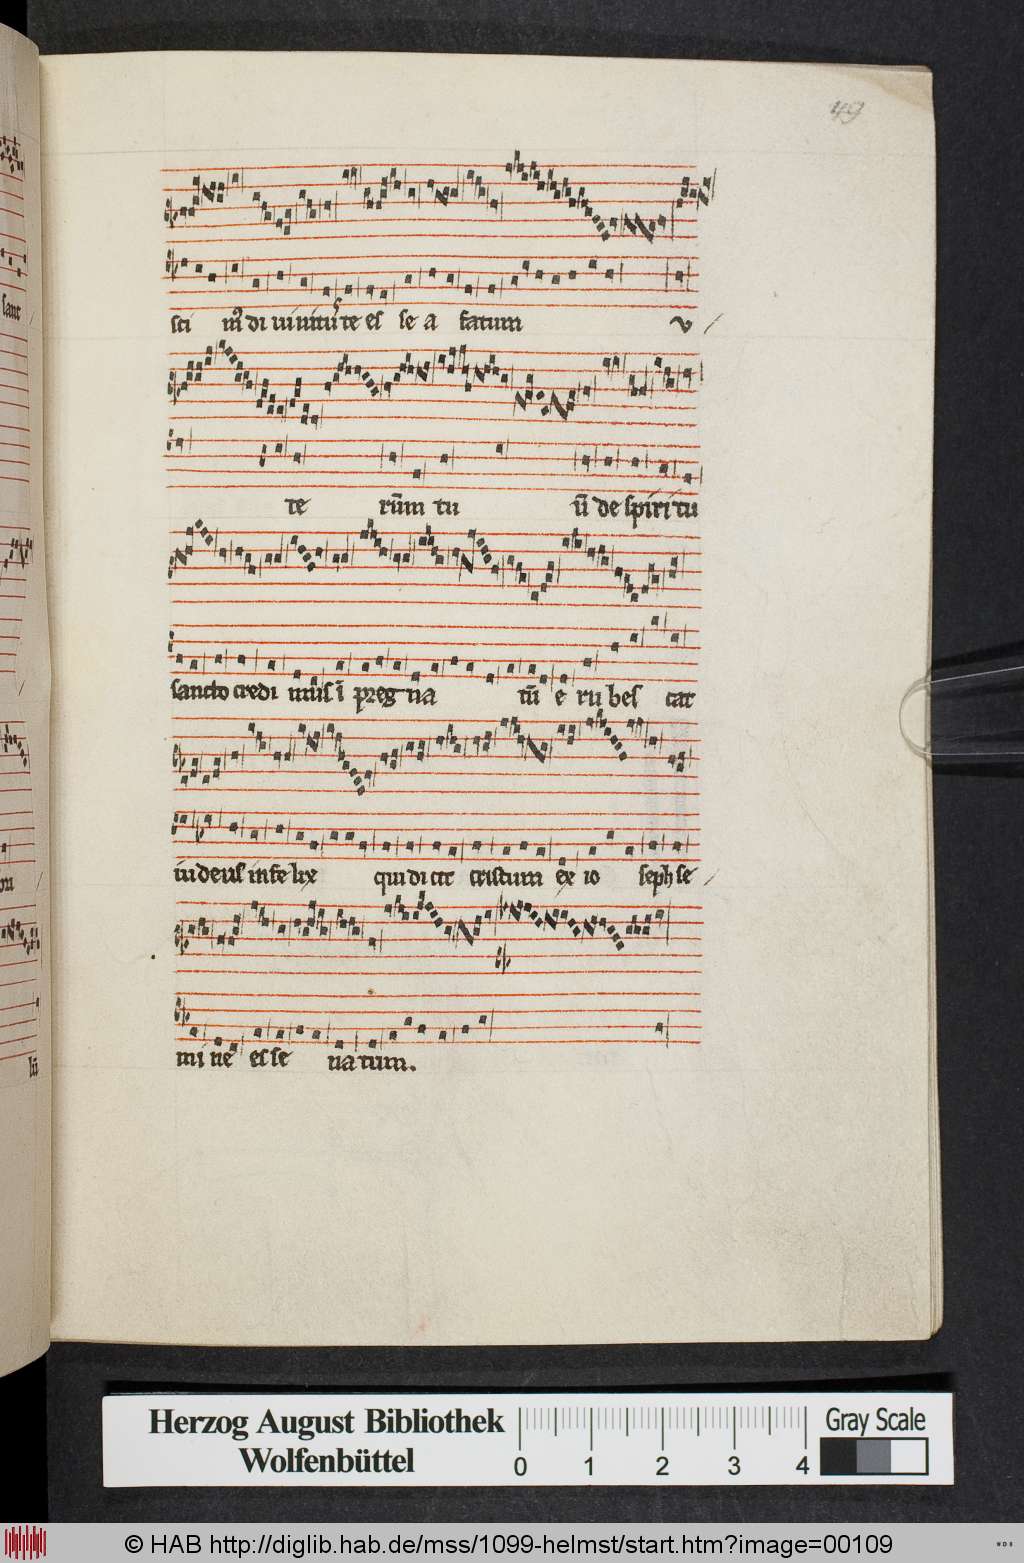 49
sci mꝰ di uinitus te es se a flatum v
te rūm tu ū de spiri tu
sancto credi mus ī preg na tū e ru bes cat
iudeus infelix qui di cit cristum ex io seph se
mi ne esse na tum.
sanc
Herzog August Bibliothek
Wolfenbüttel
0 1 2 3 4
Gray Scale
© HAB http://diglib.hab.de/mss/1099-helmst/start.htm?image=00109